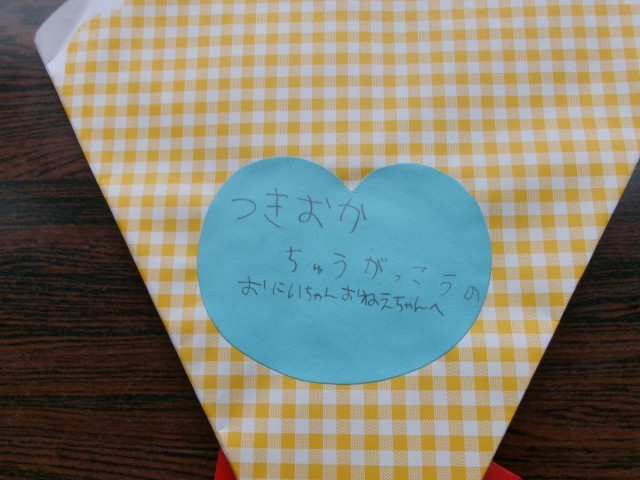 つきおか
ちゅうがっこうの
おにいちゃんおねえちゃんへ